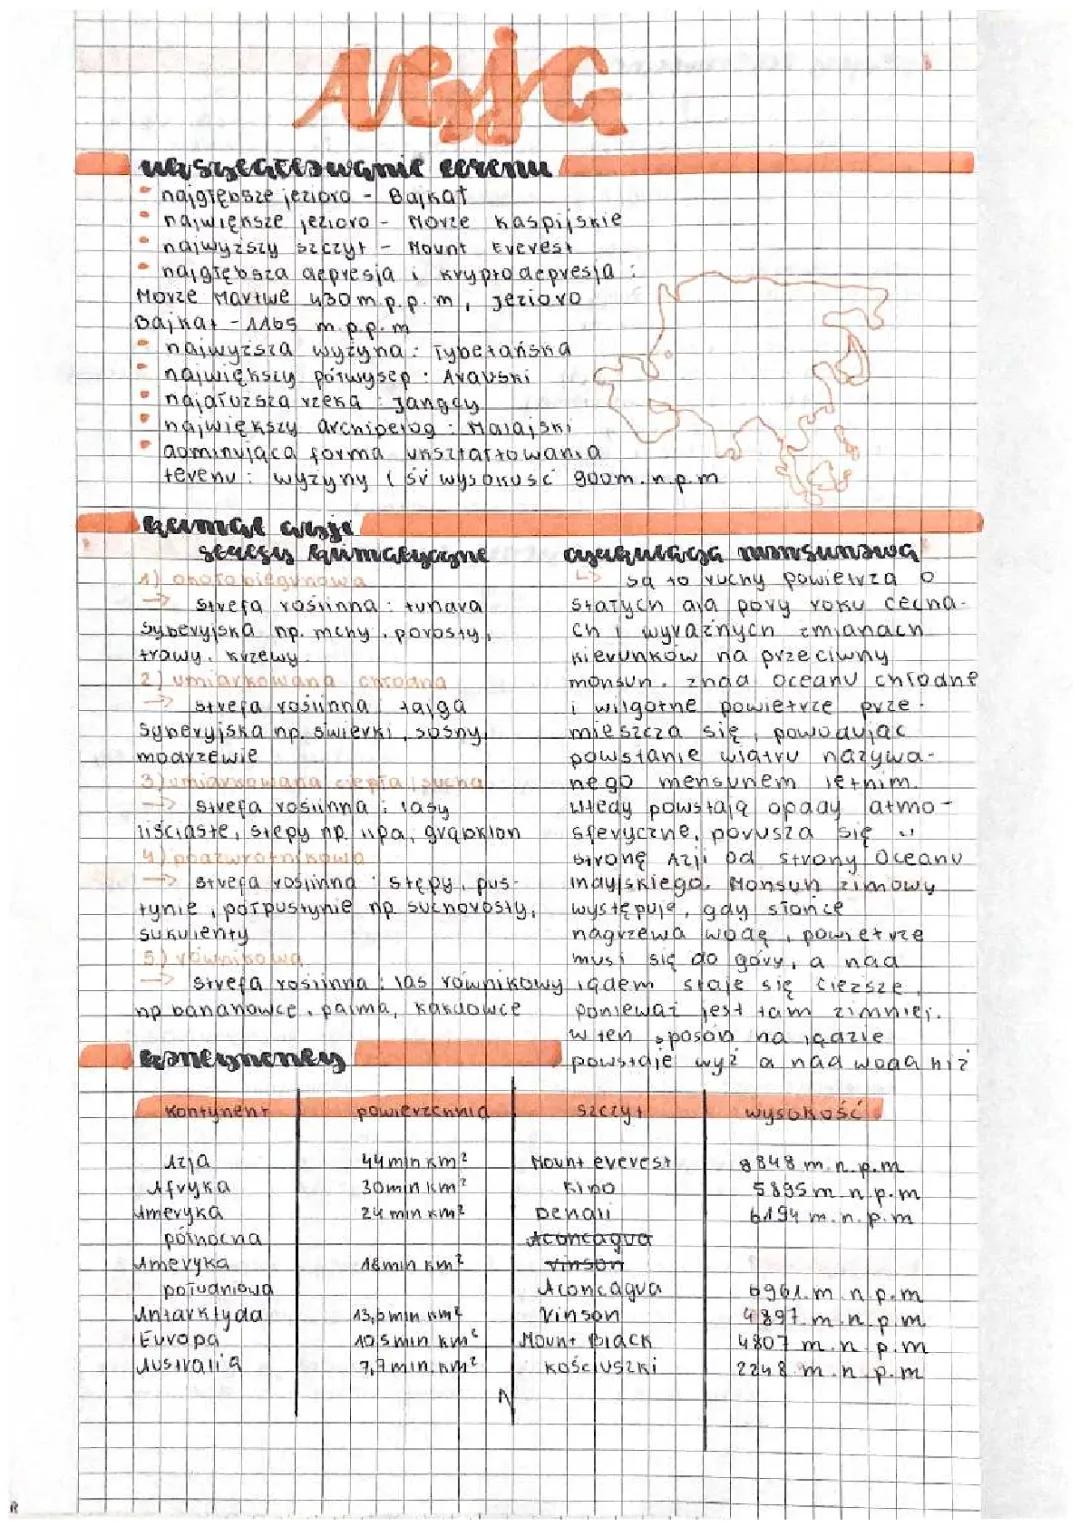 Azja
ukształtowanie terenu
najgłębsze jezioro - Bajkał
największe jezioro - Morze Kaspijskie
najwyższy szczyt - Mount Everest
najgłębsza depresja i kryptodepresja :
Morze Martwe 430 m p.p.m, jezioro
Bajkał - 1165 m p.p.m
najwyższa wyżyna : Tybetańska
największy półwysep : Arabski
najdłuższa rzeka : Jangcy
największy archipelag : Malajski
dominująca forma ukształtowania
terenu : wyżyny ( śr wysokość 900m.n.p.m
klimat azji
strefy klimatyczne
1) okołobiegunowa
→ strefa roślinna : tundra
syberyjska np. mchy, porosty,
trawy, krzewy
2) umiarkowana chłodna
→ strefa roślinna tajga
syberyjska np. świerki, sosny,
modrzewie
3) umiarkowana ciepła sucha
→ strefa roślinna : lasy
liściaste, stepy np. lipa, grab, klon
4) podzwrotnikowa
→ strefa roślinna : stepy, pus-
tynie, półpustynie np. suchorosty,
sukulenty
5) równikowa
→ strefa roślinna : las równikowy
np bananowce, palma, kakaowce
cyrkulacja monsunowa
↳ są to ruchy powietrza o
stałych dla pory roku cecha-
ch i wyraźnych zmianach
kierunków na przeciwny
monsun. znad oceanu chłodne
i wilgotne powietrze prze-
mieszcza się, powodując
powstanie wiatru nazywa-
nego monsunem letnim.
Wtedy powstają opady atmo-
sferyczne, porusza się w
stronę Azji od strony Oceanu
Indyjskiego. Monsun zimowy
występuje, gdy słońce
nagrzewa wodę, powietrze
musi się do góry, a nad
lądem staje się cięższe,
ponieważ jest tam zimniej.
w ten sposób na lądzie
powstaje wyż a nad wodą niż
kontynenty
kontynent powierzchnia szczyt wysokość
Azja 44 mln km² Mount everest 8848 m.n.p.m
Afryka 30mln km² Kibo 5895 m n p.m
Ameryka 24 mln km² Denali 6194 m.n.p.m
północna Aconcagua
Ameryka 18mln km² Vinson
południowa Aconcagua 6961.m n p.m
Antarktyda 13,6mln km² Vinson 4897.m.n.p.m
Europa 10,5mln km² Mount Black 4807 m.n p.m
Australia 7,7mln.km² Kościuszki 2248 m.n.p.m